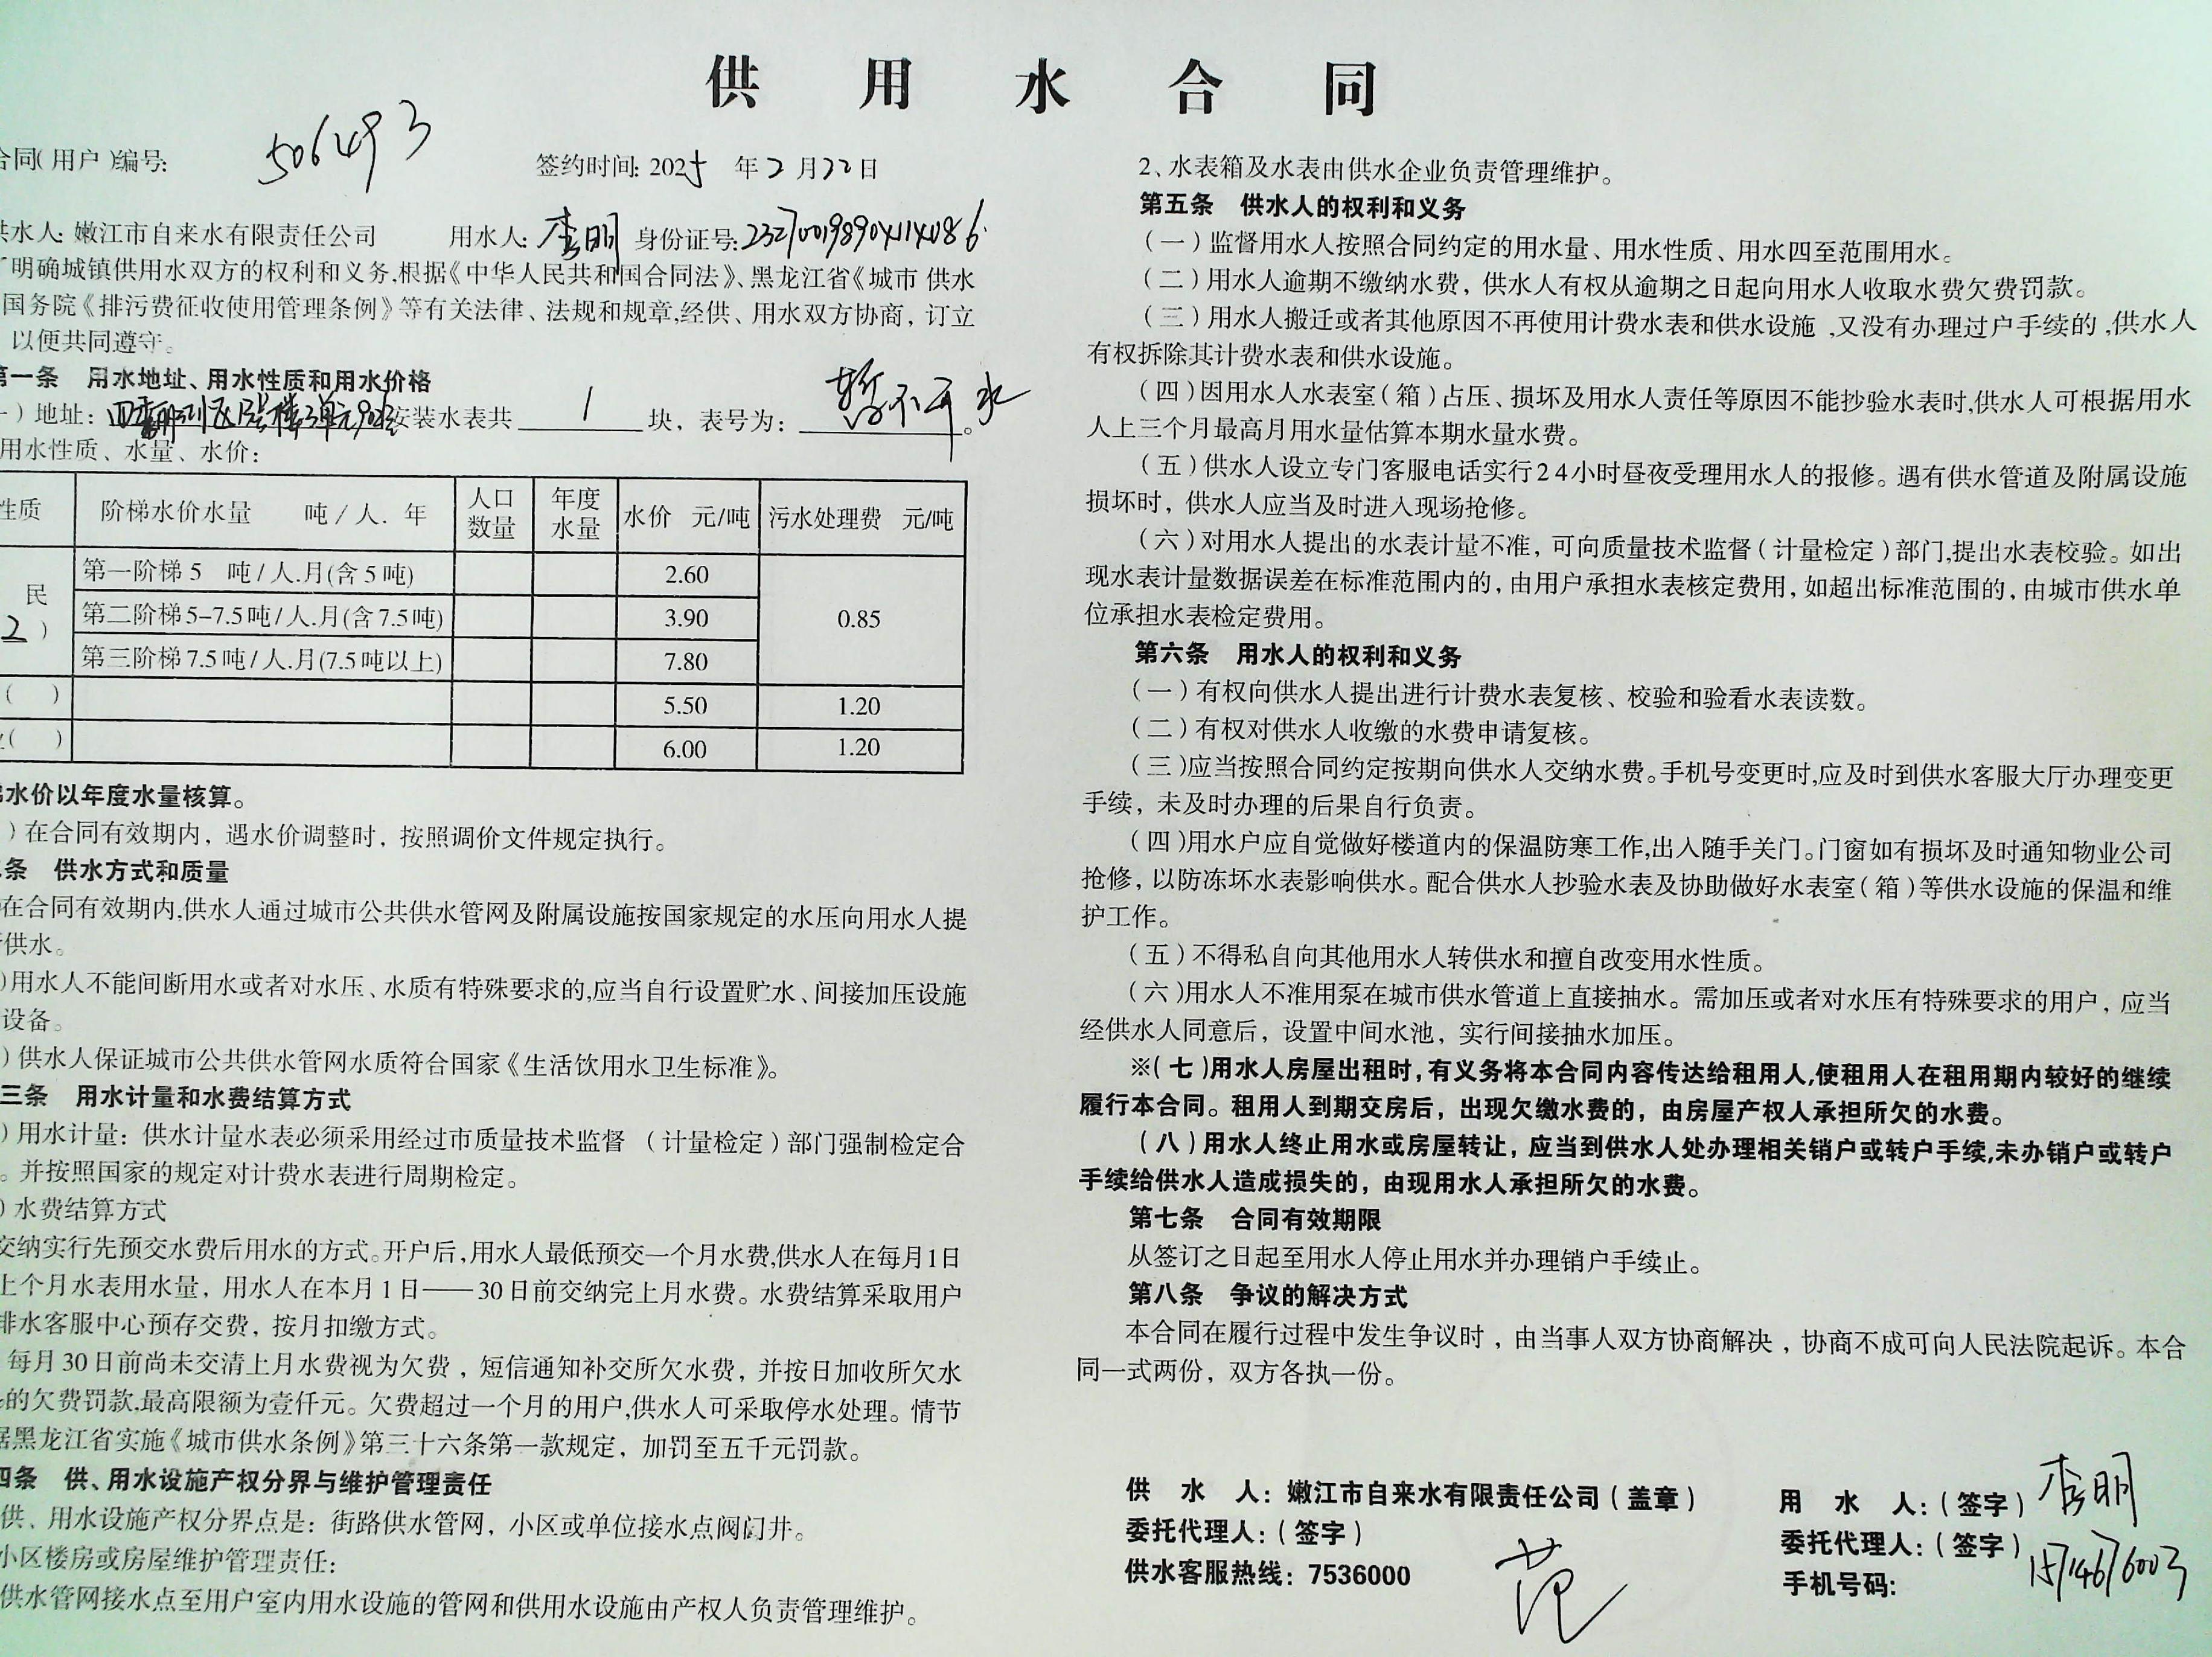 供用水合同
合同(用户)编号: 506493
签约时间: 2025年2月22日
供水人: 嫩江市自来水有限责任公司 用水人: 李明 身份证号: 232700198904114086
明确城镇供用水双方的权利和义务,根据《中华人民共和国合同法》、黑龙江省《城市 供水
国务院《排污费征收使用管理条例》等有关法律、法规和规章,经供、用水双方协商，订立
以便共同遵守。
第一条 用水地址、用水性质和用水价格
一）地址： 安装水表共 1 块，表号为： 暂不开水 。
用水性质、水量、水价：
性质 阶梯水价水量 吨/人.年 人口数量 年度水量 水价 元/吨 污水处理费 元/吨
民 2） 第一阶梯5 吨/人.月(含5吨) 2.60 0.85
第二阶梯5-7.5吨/人.月(含7.5吨) 3.90
第三阶梯7.5吨/人.月(7.5吨以上) 7.80
( ) 5.50 1.20
( ) 6.00 1.20
水价以年度水量核算。
）在合同有效期内，遇水价调整时，按照调价文件规定执行。
条 供水方式和质量
在合同有效期内,供水人通过城市公共供水管网及附属设施按国家规定的水压向用水人提
供水。
)用水人不能间断用水或者对水压、水质有特殊要求的,应当自行设置贮水、间接加压设施
设备。
）供水人保证城市公共供水管网水质符合国家《生活饮用水卫生标准》。
三条 用水计量和水费结算方式
）用水计量：供水计量水表必须采用经过市质量技术监督 （计量检定）部门强制检定合
。并按照国家的规定对计费水表进行周期检定。
）水费结算方式
交纳实行先预交水费后用水的方式。开户后,用水人最低预交一个月水费,供水人在每月1日
上个月水表用水量，用水人在本月1日——30日前交纳完上月水费。水费结算采取用户
排水客服中心预存交费，按月扣缴方式。
每月30日前尚未交清上月水费视为欠费，短信通知补交所欠水费，并按日加收所欠水
的欠费罚款,最高限额为壹仟元。欠费超过一个月的用户,供水人可采取停水处理。情节
据黑龙江省实施《城市供水条例》第三十六条第一款规定，加罚至五千元罚款。
四条 供、用水设施产权分界与维护管理责任
供、用水设施产权分界点是：街路供水管网，小区或单位接水点阀门井。
小区楼房或房屋维护管理责任：
供水管网接水点至用户室内用水设施的管网和供用水设施由产权人负责管理维护。
2、水表箱及水表由供水企业负责管理维护。
第五条 供水人的权利和义务
（一）监督用水人按照合同约定的用水量、用水性质、用水四至范围用水。
（二）用水人逾期不缴纳水费，供水人有权从逾期之日起向用水人收取水费欠费罚款。
（三）用水人搬迁或者其他原因不再使用计费水表和供水设施,又没有办理过户手续的,供水人
有权拆除其计费水表和供水设施。
（四）因用水人水表室（箱）占压、损坏及用水人责任等原因不能抄验水表时,供水人可根据用水
人上三个月最高月用水量估算本期水量水费。
（五）供水人设立专门客服电话实行24小时昼夜受理用水人的报修。遇有供水管道及附属设施
损坏时，供水人应当及时进入现场抢修。
（六）对用水人提出的水表计量不准，可向质量技术监督（计量检定）部门,提出水表校验。如出
现水表计量数据误差在标准范围内的，由用户承担水表核定费用，如超出标准范围的，由城市供水单
位承担水表检定费用。
第六条 用水人的权利和义务
（一）有权向供水人提出进行计费水表复核、校验和验看水表读数。
（二）有权对供水人收缴的水费申请复核。
（三）应当按照合同约定按期向供水人交纳水费。手机号变更时,应及时到供水客服大厅办理变更
手续，未及时办理的后果自行负责。
（四）用水户应自觉做好楼道内的保温防寒工作,出入随手关门。门窗如有损坏及时通知物业公司
抢修，以防冻坏水表影响供水。配合供水人抄验水表及协助做好水表室（箱）等供水设施的保温和维
护工作。
（五）不得私自向其他用水人转供水和擅自改变用水性质。
（六）用水人不准用泵在城市供水管道上直接抽水。需加压或者对水压有特殊要求的用户，应当
经供水人同意后，设置中间水池，实行间接抽水加压。
※（七）用水人房屋出租时,有义务将本合同内容传达给租用人,使租用人在租用期内较好的继续
履行本合同。租用人到期交房后，出现欠缴水费的，由房屋产权人承担所欠的水费。
（八）用水人终止用水或房屋转让，应当到供水人处办理相关销户或转户手续,未办销户或转户
手续给供水人造成损失的，由现用水人承担所欠的水费。
第七条 合同有效期限
从签订之日起至用水人停止用水并办理销户手续止。
第八条 争议的解决方式
本合同在履行过程中发生争议时，由当事人双方协商解决，协商不成可向人民法院起诉。本合
同一式两份，双方各执一份。
供 水 人：嫩江市自来水有限责任公司（盖章）
委托代理人：（签字） 范
供水客服热线：7536000
用 水 人：（签字） 李明
委托代理人：（签字）
手机号码: 15714676003